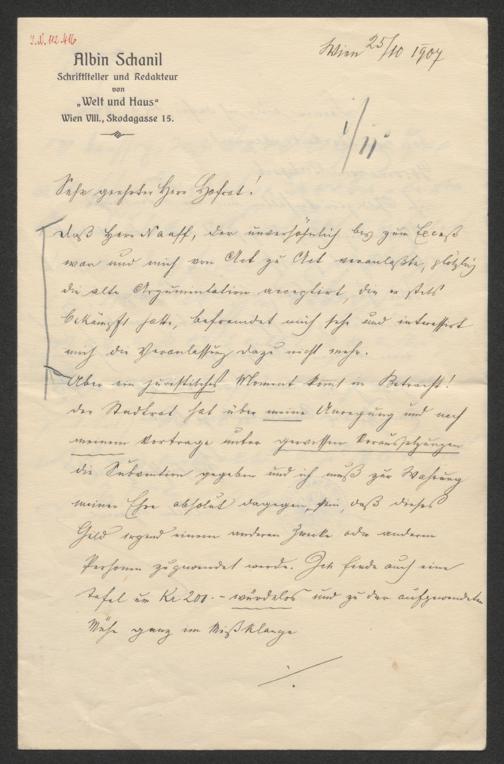 I.N. 112.416
Albin Schanil
Schriftsteller und Redakteur
von
„Welt und Haus“
Wien VIII., Skodagasse 15.
Wien 25/10 1907
1/11
Sehr geehrter Herr Hofrat!
Daß Herr Naaff, der unversöhnlich bis zum Exceß
war und mich von Act zu Act veranlaßte, plötzlich
die alte Argumentation acceptirt, die er stets
bekämpft hatte, befremdet mich sehr und interessirt
mich die Veranlassung dazu nicht mehr.
Aber ein juristisches Moment kommt in Betracht!
Der Stadtrat hat über meine Anregung und nach
meinem Vortrage unter gewissen Voraussetzungen
die Subvention gegeben und ich muß zur Wahrung
meiner Ehre absolut dagegen sein, daß dieses
Geld irgend einem anderen Zwecke oder anderen
Personen zugewendet werde. Ich finde auch eine
Tafel um Kr 200.- würdelos und zu der aufgewendeten
Mühe ganz im Mißklange
./.